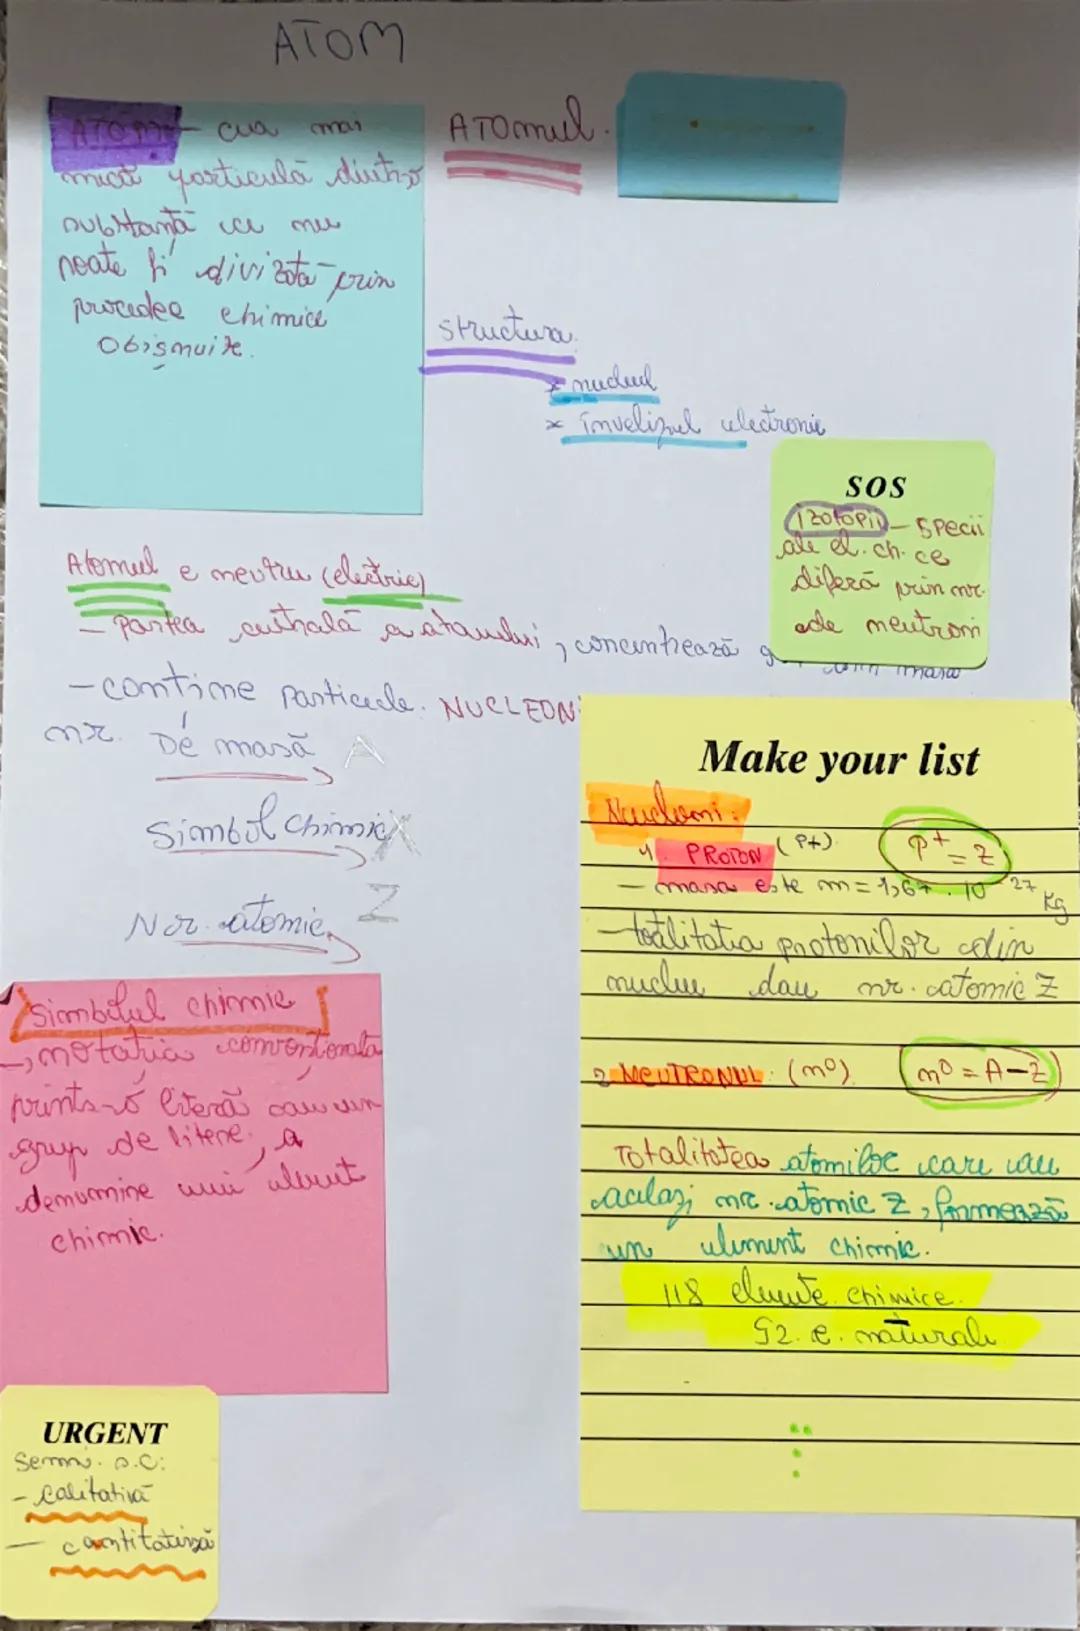 ATOM
ATOM - cea mai
mică particulă dintr-o
substanță ce nu
poate fi divizată prin
procedee chimice
obișnuite.
ATOMUL.
structura.
× nucleul
× învelișul electronic
SOS
izotopii - specii
ale el. ch. ce
diferă prin nr.
de neutroni
Atomul e neutru (electric)
- partea centrală a atomului, concentrează
masa
- conține particule. NUCLEONI
nr. De masă A
Simbol chimic X
Nr. atomic Z
Make your list
Nucleoni:
1. PROTON (p+) p+ = Z
- masa este m = 1,67 . 10 -27 Kg
- totalitatea protonilor din
nucleu dau nr. atomic Z
2 NEUTRONUL. (n0) n0 = A - Z
Totalitatea atomilor care au
același nr. atomic Z, formează
un element chimic.
118 elemente chimice.
92. e. naturale
Simbolul chimic
→ notația convențională
printr-o literă sau un
grup de litere, a
denumirii unui element
chimic.
URGENT
Semn. s.c:
- calitativă
- cantitativă